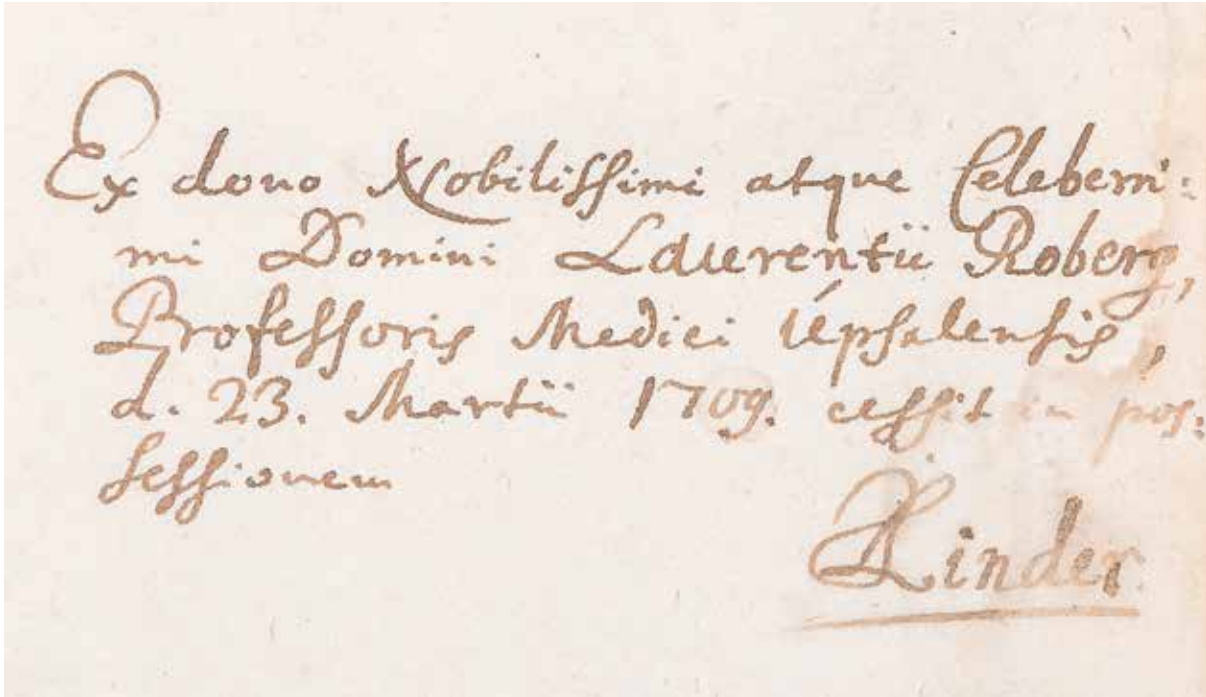 Ex dono Nobilissimi atque Celeberri:
mi Domini Laurentii Roberg,
Professoris Medici Upsalensis,
d. 23. Martii 1709. cessit in pos:
sessionem
JLinder.